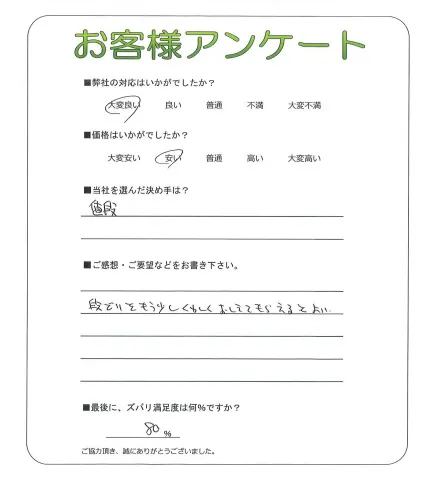 お客様アンケート
■弊社の対応はいかがでしたか？
大変良い 良い 普通 不満 大変不満
■価格はいかがでしたか？
大変安い 安い 普通 高い 大変高い
■当社を選んだ決め手は？
値段
■ご感想・ご要望などをお書き下さい。
段どりをもう少しくわしくおしえてもらえるとよい
■最後に、ズバリ満足度は何％ですか？
80 %
ご協力頂き、誠にありがとうございました。